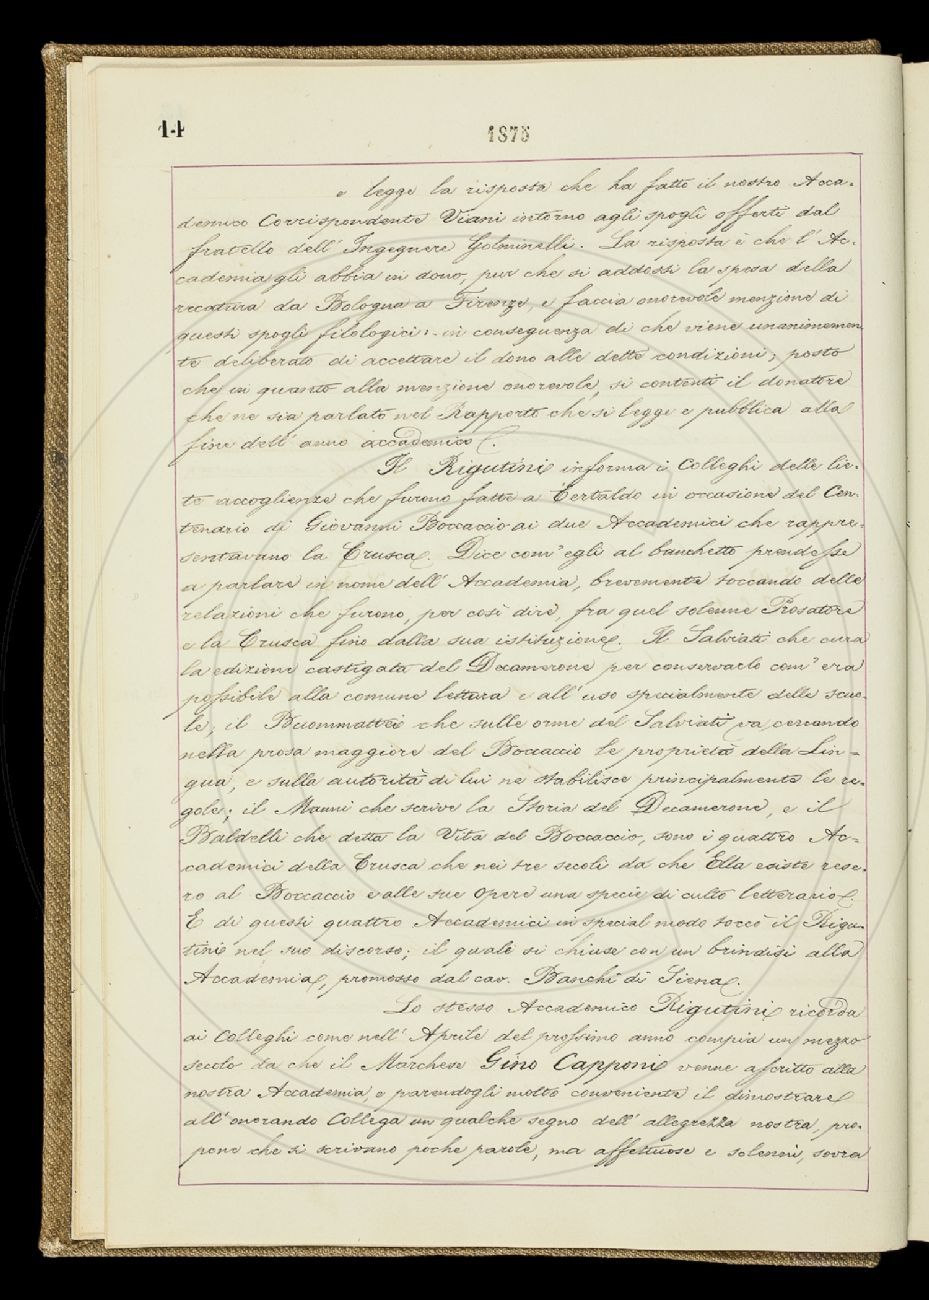 14
1875
e legge la risposta che ha fatto il nostro Acca-
demico Corrispondente Viani intorno agli spogli offerti dal
fratello dell' Ingegnere Golminelli. La risposta è che l' Ac-
cademia gli abbia in dono, pur che si addossi la spesa della
recatura da Bologna a Firenze, e faccia onorevole menzione di
questi spogli filologici: in conseguenza di che viene unanimemen-
te deliberato di accettare il dono alle dette condizioni; posto
che in quanto alla menzione onorevole, si contenti il donatore
che ne sia parlato nel Rapporto che si legge e pubblica alla
fine dell' anno accademico.
Il Rigutini informa i Colleghi delle lie-
te accoglienze che furono fatte a Certaldo in occasione del Cen-
tenario di Giovanni Boccaccio ai due Accademici che rappre-
sentavano la Crusca. Dice com' egli al banchetto prendesse
a parlare in nome dell' Accademia, brevemente toccando delle
relazioni che furono, per così dire, fra quel solenne Prosatore
e la Crusca fino dalla sua istituzione. Il Salviati che cura
la edizione castigata del Decamerone per conservarlo com' era
possibile alla comune lettura e all' uso specialmente delle scuo-
le; il Buommattei che sulle orme del Salviati va cercando
nella prosa maggiore del Boccaccio le proprietà della Lin-
gua, e sulla autorità di lui ne stabilisce principalmente le re-
gole; il Manni che scrive la Storia del Decamerone, e il
Baldelli che detta la Vita del Boccaccio, sono i quattro Ac-
cademici della Crusca che nei tre secoli da che Ella esiste rese-
ro al Boccaccio e alle sue Opere una specie di culto letterario.
E di questi quattro Accademici in special modo toccò il Rigu-
tini nel suo discorso; il quale si chiuse con un brindisi alla
Accademia, promosso dal cav. Banchi di Siena.
Lo stesso Accademico Rigutini ricorda
ai Colleghi come nell' Aprile del prossimo anno compia un mezzo
secolo da che il Marchese Gino Capponi venne ascritto alla
nostra Accademia, e parendogli molto conveniente il dimostrare
all' onorando Collega un qualche segno dell' allegrezza nostra, pro-
pone che si scrivano poche parole, ma affettuose e solenni, sovra